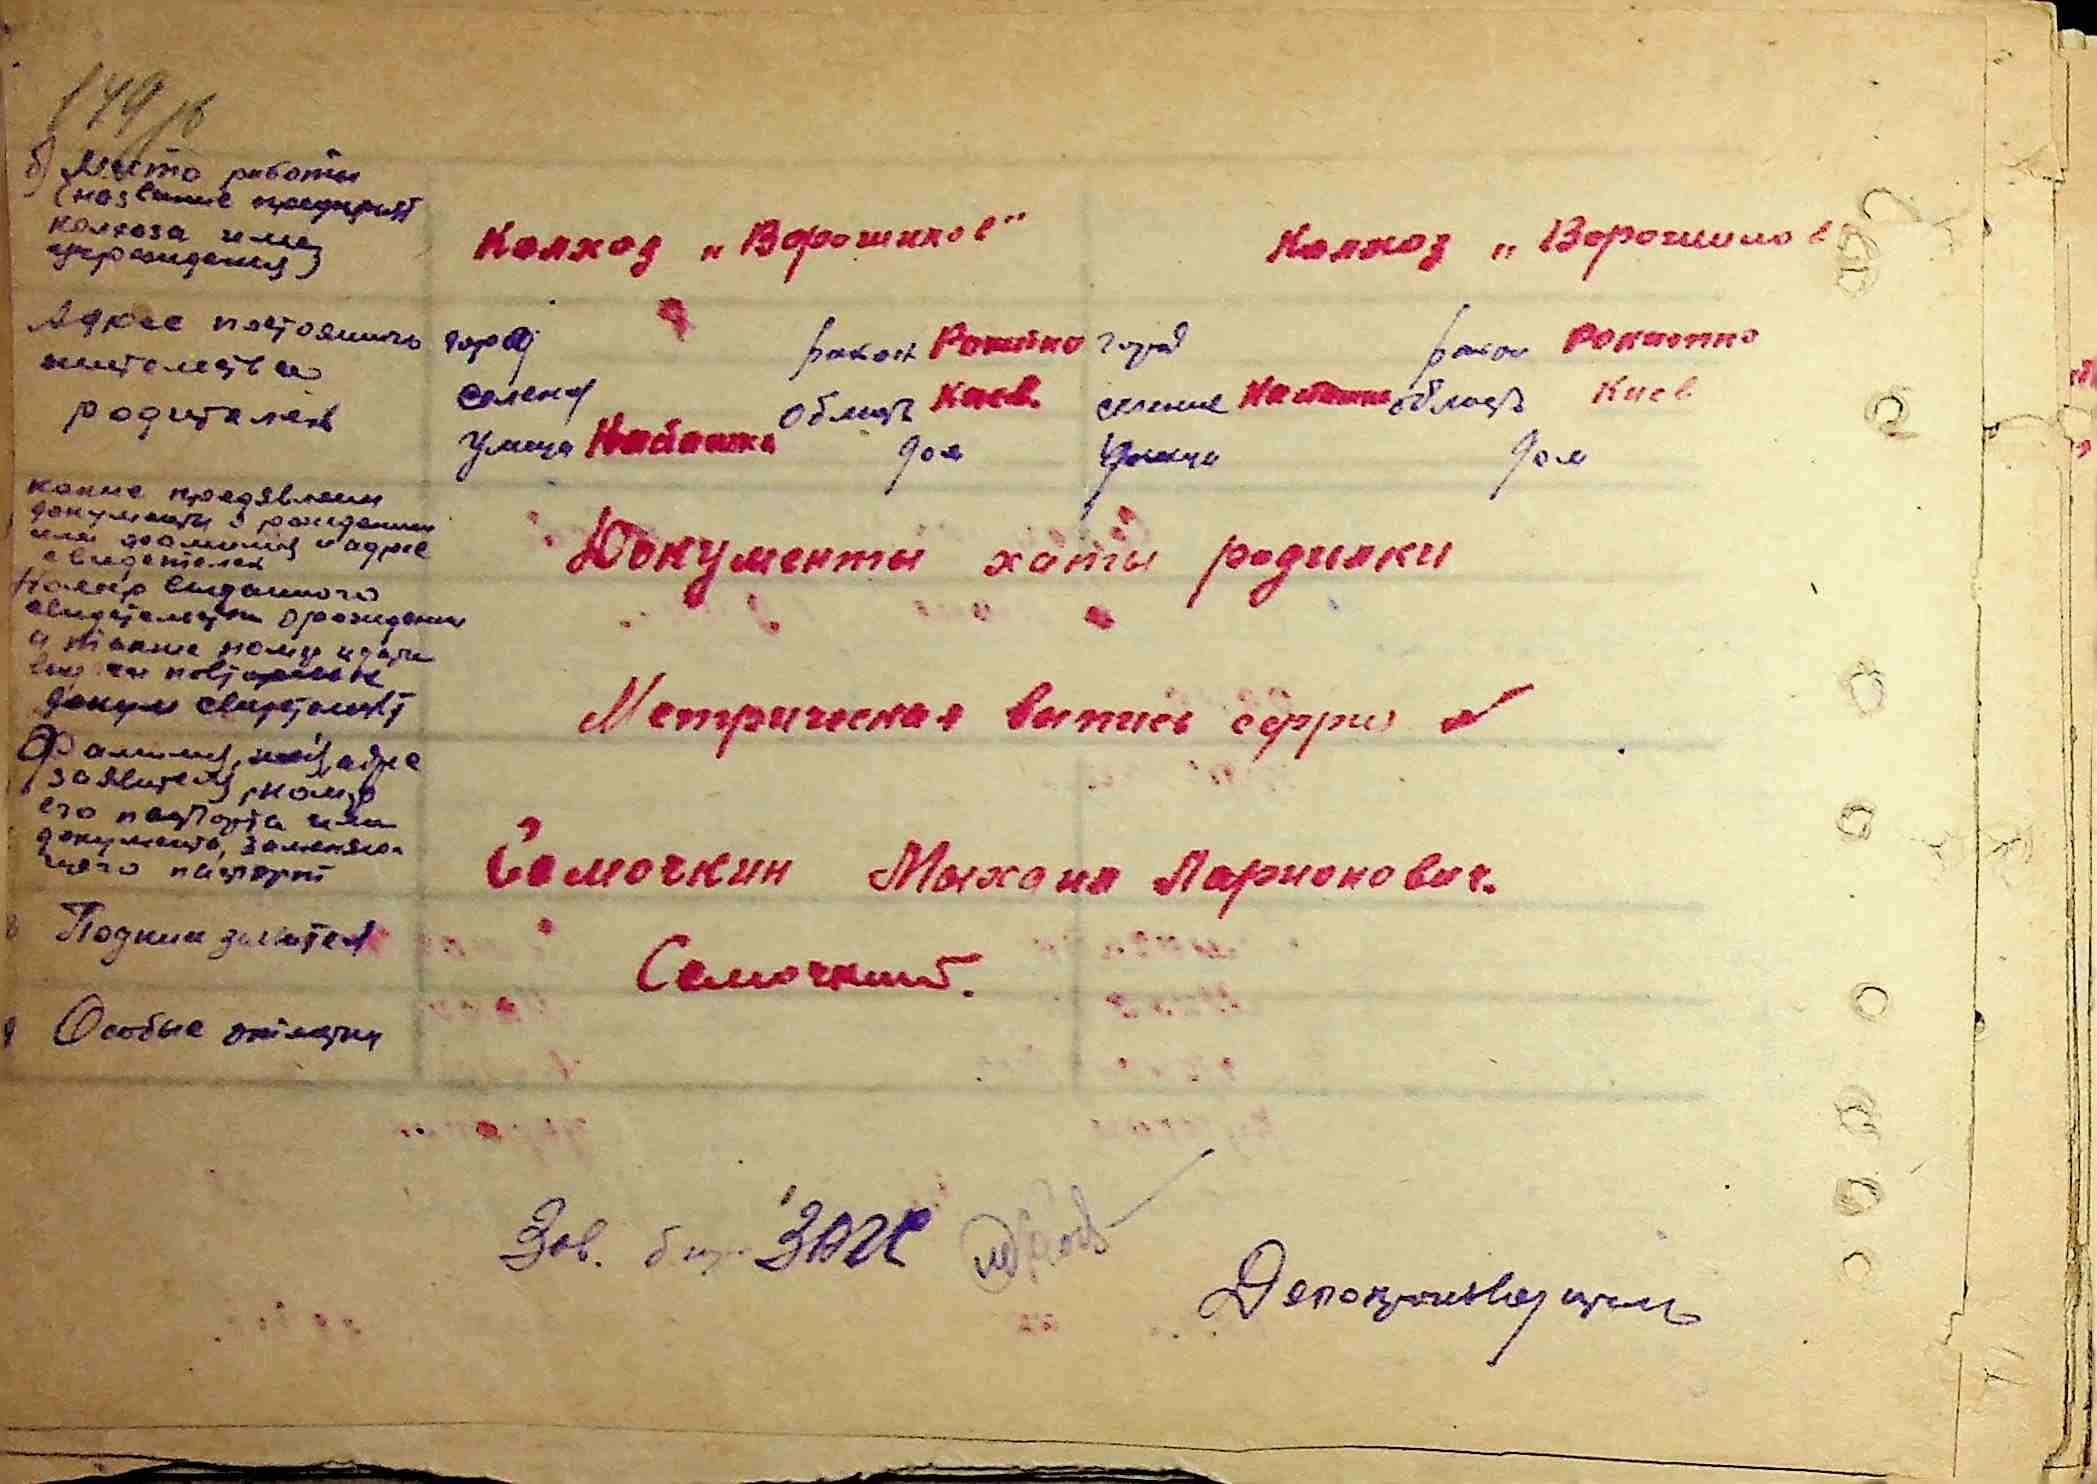 149 зв
б) Место работы
(название предприят
колхоза или
учреждения)
Колхоз „Ворошилов" Колхоз „Ворошилов
Адрес постоянного
жительства
родителей
город район Рокитно город район Рокитно
селен область Киев. селение Насташка область Киев
улица Насташка дом улица дом
какие предявлены
документы о рождении
или фамилия и адрес
свидетелей
Документы хаты родилки
Номер выданного
свидетельства о рождении
а также номер и дата
выдачи повторных
докум свидетельст
Метрическая выпись
Фамилия, имя, адрес
заявителя, номер
его паспорта или
документа, заменяю-
щего паспорт
Самочкин Мыхаил Ларионович.
Подпись заявителя
Самочкин.
Особые отметки
Зав. бюро ЗАГС
Делопроизводитель